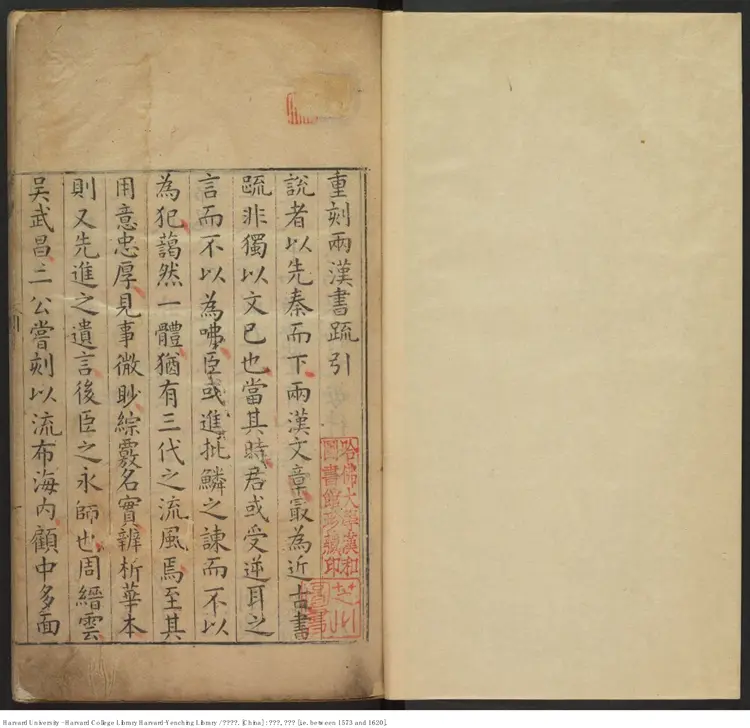 重刻兩漢書疏引
說者以先秦而下兩漢文章最為近古書
疏非獨以文已也當其時君或受逆耳之
言而不以為咈臣或進批鱗之諫而不以
為犯藹然一體猶有三代之流風焉至其
用意忠厚見事微眇綜覈名實辨析華本
則又先進之遺言後臣之永師也周縉雲
吳武昌二公嘗刻以流布海內顧中多面
哈佛大學漢和
圖書館珍藏印
芝川
圖書
Harvard University - Harvard College Library Harvard-Yenching Library / ????. [China] : ???, ??? [i.e. between 1573 and 1620].